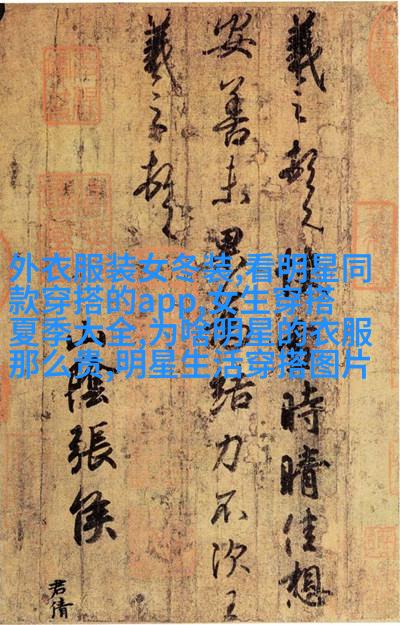 外衣服装女冬装,看明星同
款穿搭的app,女生穿搭
夏季大全,为啥明星的衣服
那么贵,明星生活穿搭图片
羲之頓首快時晴佳想
安善未果為結力不次王
羲之頓首
山陰張侯
君倩